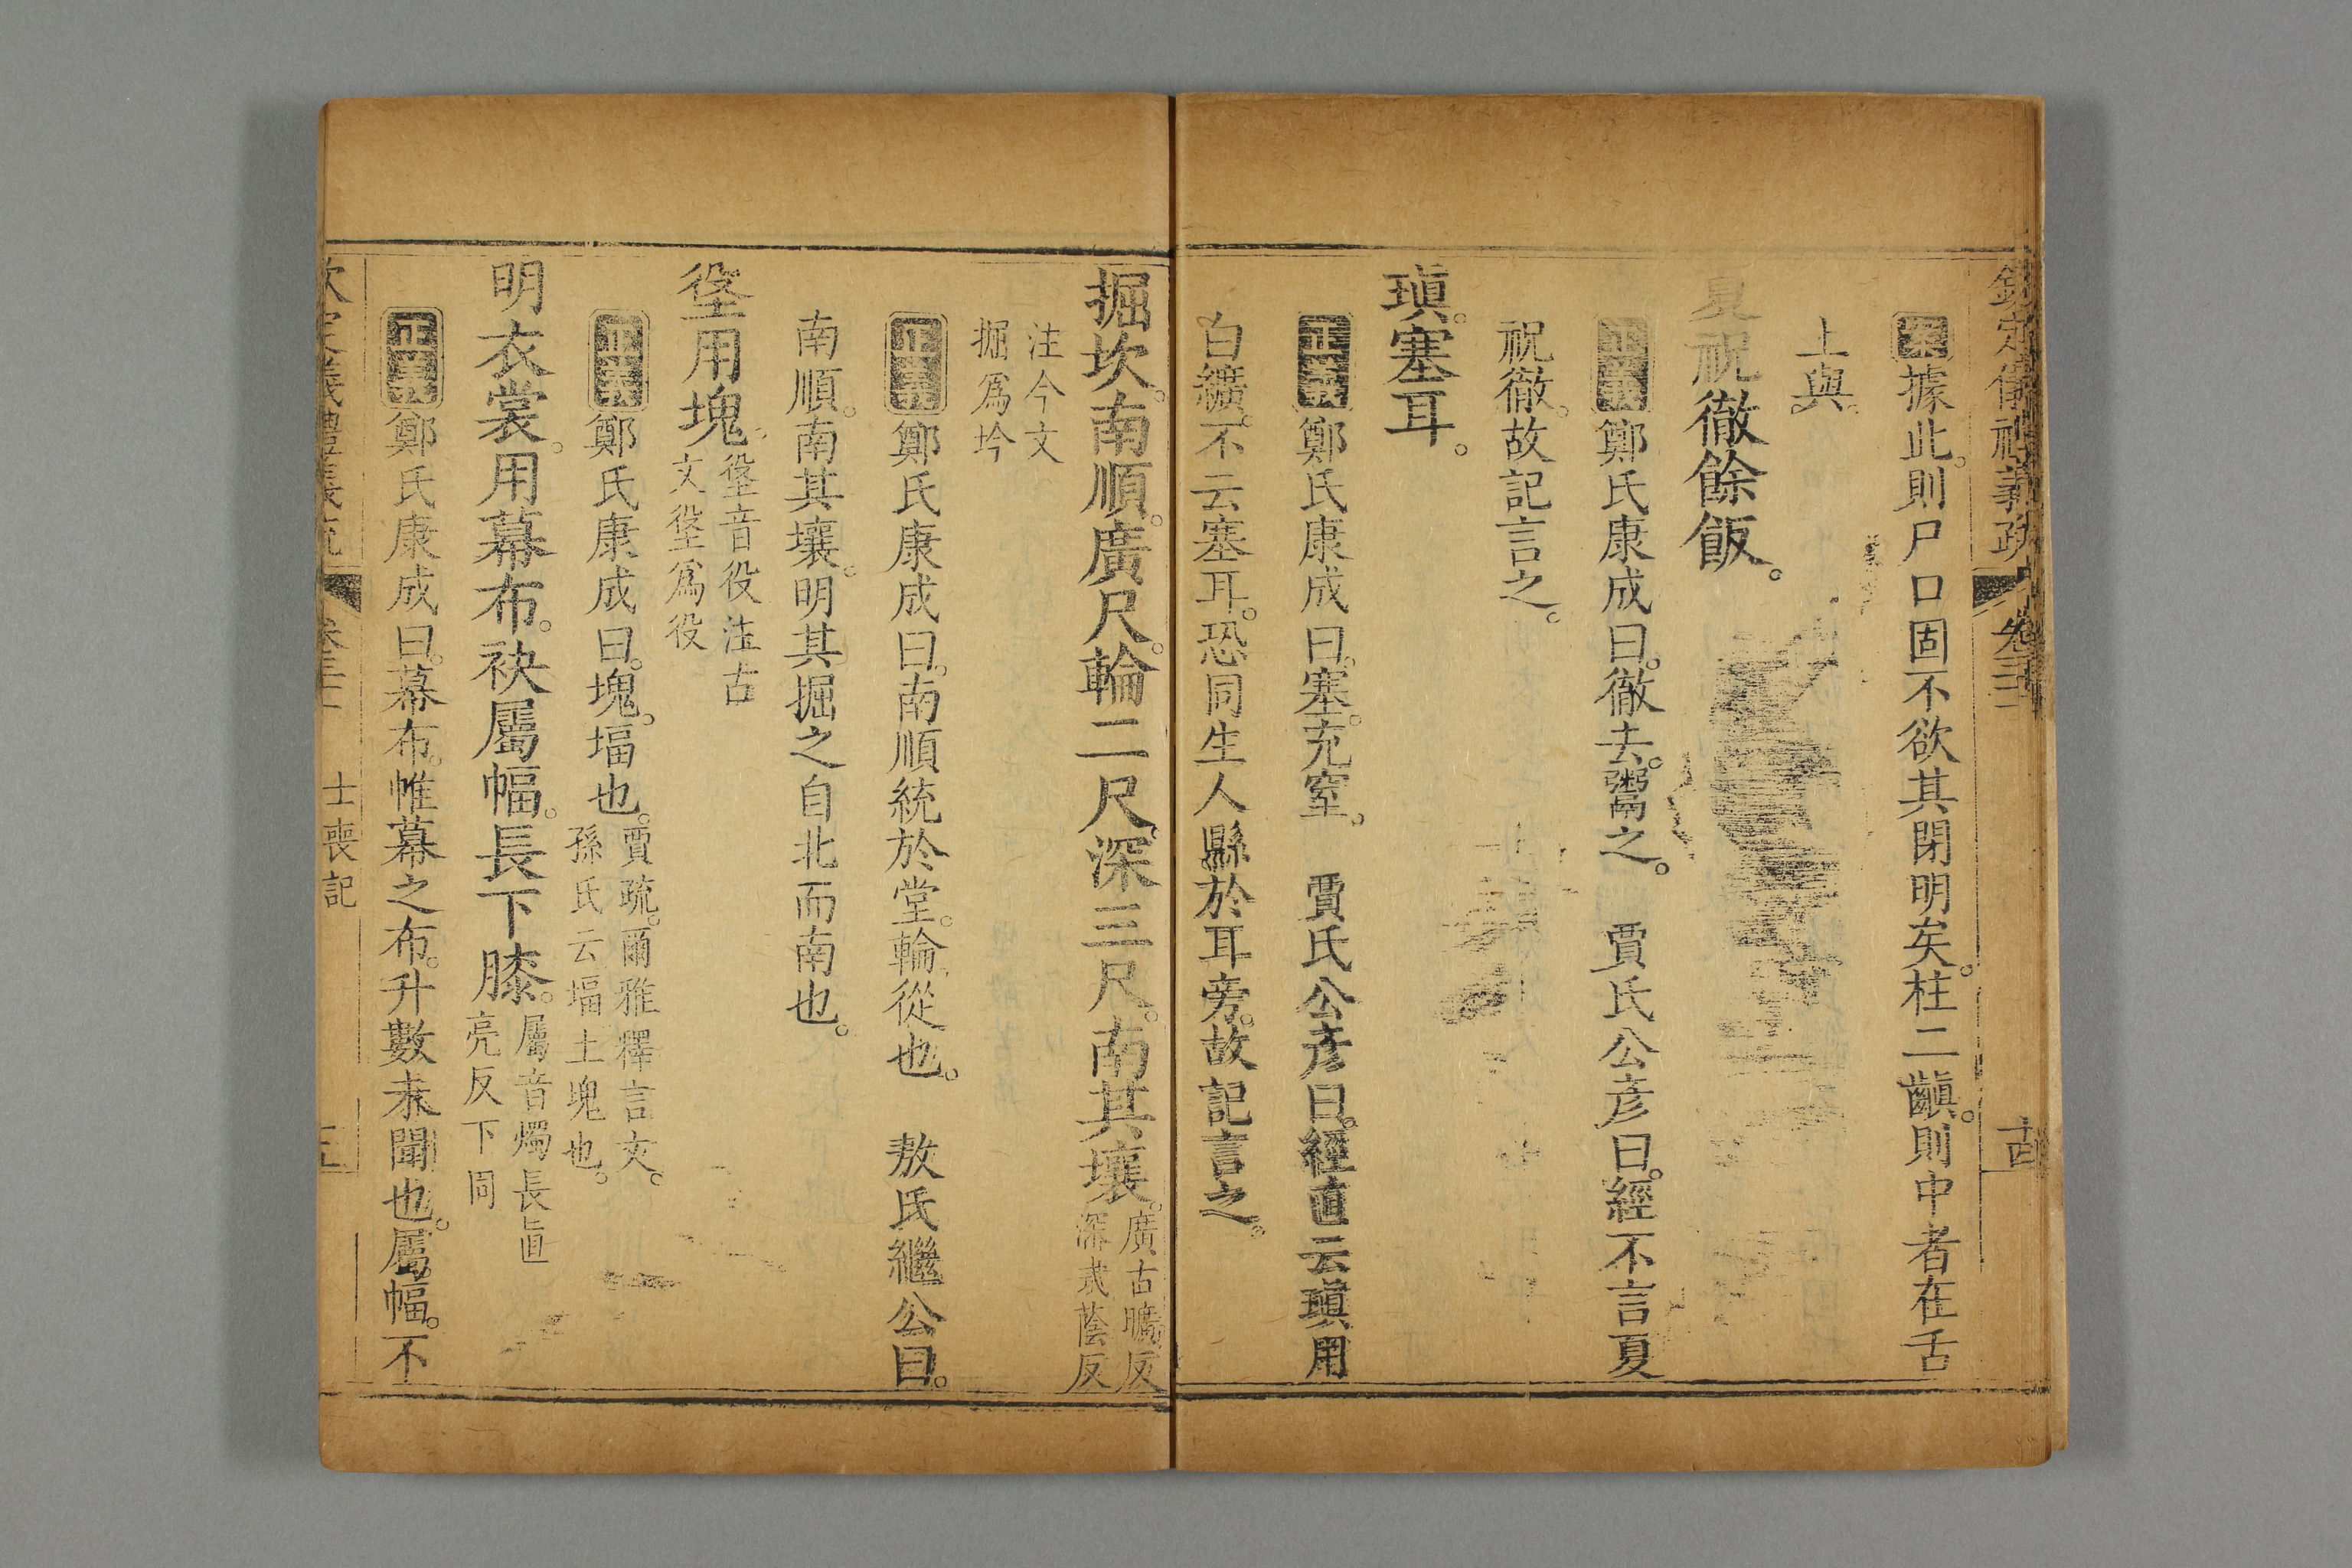 欽定儀禮義疏 卷三十二 十四
案據此。則尸口固不欲其閉明矣。柱二齻。則中者在舌
上與。
夏祝徹餘飯。
正義鄭氏康成曰。徹去鬻之。 賈氏公彦曰。經不言夏
祝徹。故記言之。
瑱。塞耳。
正義鄭氏康成曰。塞。充窒。 賈氏公彦曰。經直云瑱用
白纊。不云塞耳。恐同生人縣於耳旁。故記言之。
掘坎。南順。廣尺。輪二尺。深三尺。南其壤。廣古曠反
深式蔭反
注今文
掘爲坅
正義鄭氏康成曰。南順統於堂。輪。從也。 敖氏繼公曰。
南順。南其壤。明其掘之自北而南也。
垼用塊。垼音役注古
文垼爲役
正義鄭氏康成曰。塊。堛也。賈疏。爾雅釋言文。
孫氏云堛土塊也。
明衣裳。用幕布。袂屬幅。長下膝。屬音燭長直
亮反下同
正義鄭氏康成曰。幕布。帷幕之布。升數未聞也。屬幅。不
士喪記